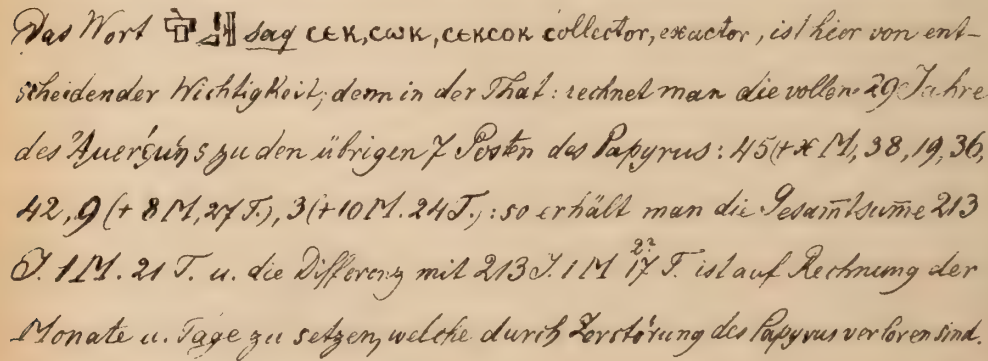 Das Wort saq ⲥⲉⲕ, ⲥⲱⲕ, ⲥⲉⲕⲥⲟⲕ collector, exactor, ist hier von ent-
scheidender Wichtigkeit; denn in der That: rechnet man die vollen 29 Jahre
des zu den übrigen 7 Posten des Papyrus: 45 (+ x M, 38, 19, 36,
42, 9 (+ 8 M, 27 T.), 3 (+ 10 M. 24 T.): so erhält man die Gesam̄tsum̄e 213
J. 1 M. 21 T. u. die Differenz mit 213 J. 1 M 17 T. ist auf Rechnung der
Monate u. Tage zu setzen, welche durch Zerstörung des Papyrus verloren sind.